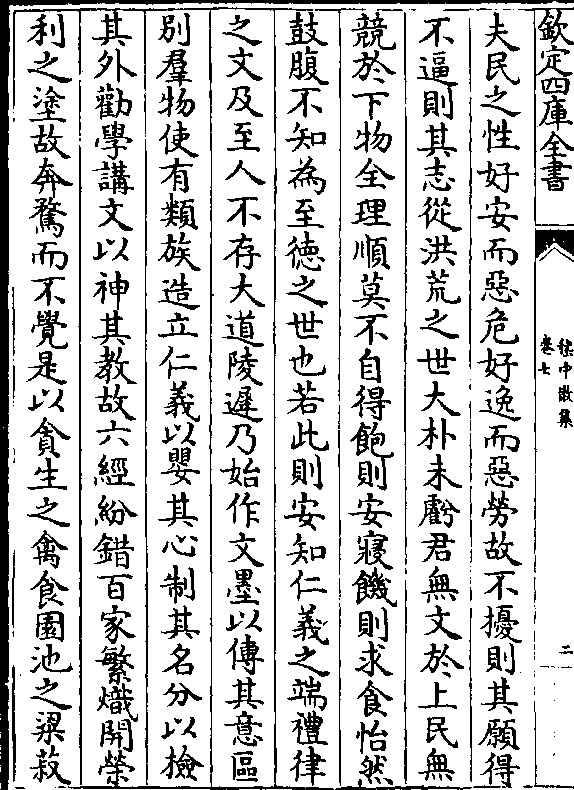 欽定四庫全書
嵇中散集
卷七
二
夫民之性好安而惡危好逸而惡勞故不擾則其願得
不逼則其志從洪荒之世大朴未虧君無文於上民無
競於下物全理順莫不自得飽則安寢饑則求食怡然
鼓腹不知為至德之世也若此則安知仁義之端禮律
之文及至人不存大道陵遲乃始作文墨以傳其意區
別羣物使有類族造立仁義以嬰其心制其名分以檢
其外勸學講文以神其教故六經紛錯百家繁熾開榮
利之塗故奔騖而不覺是以貪生之禽食園池之粱菽